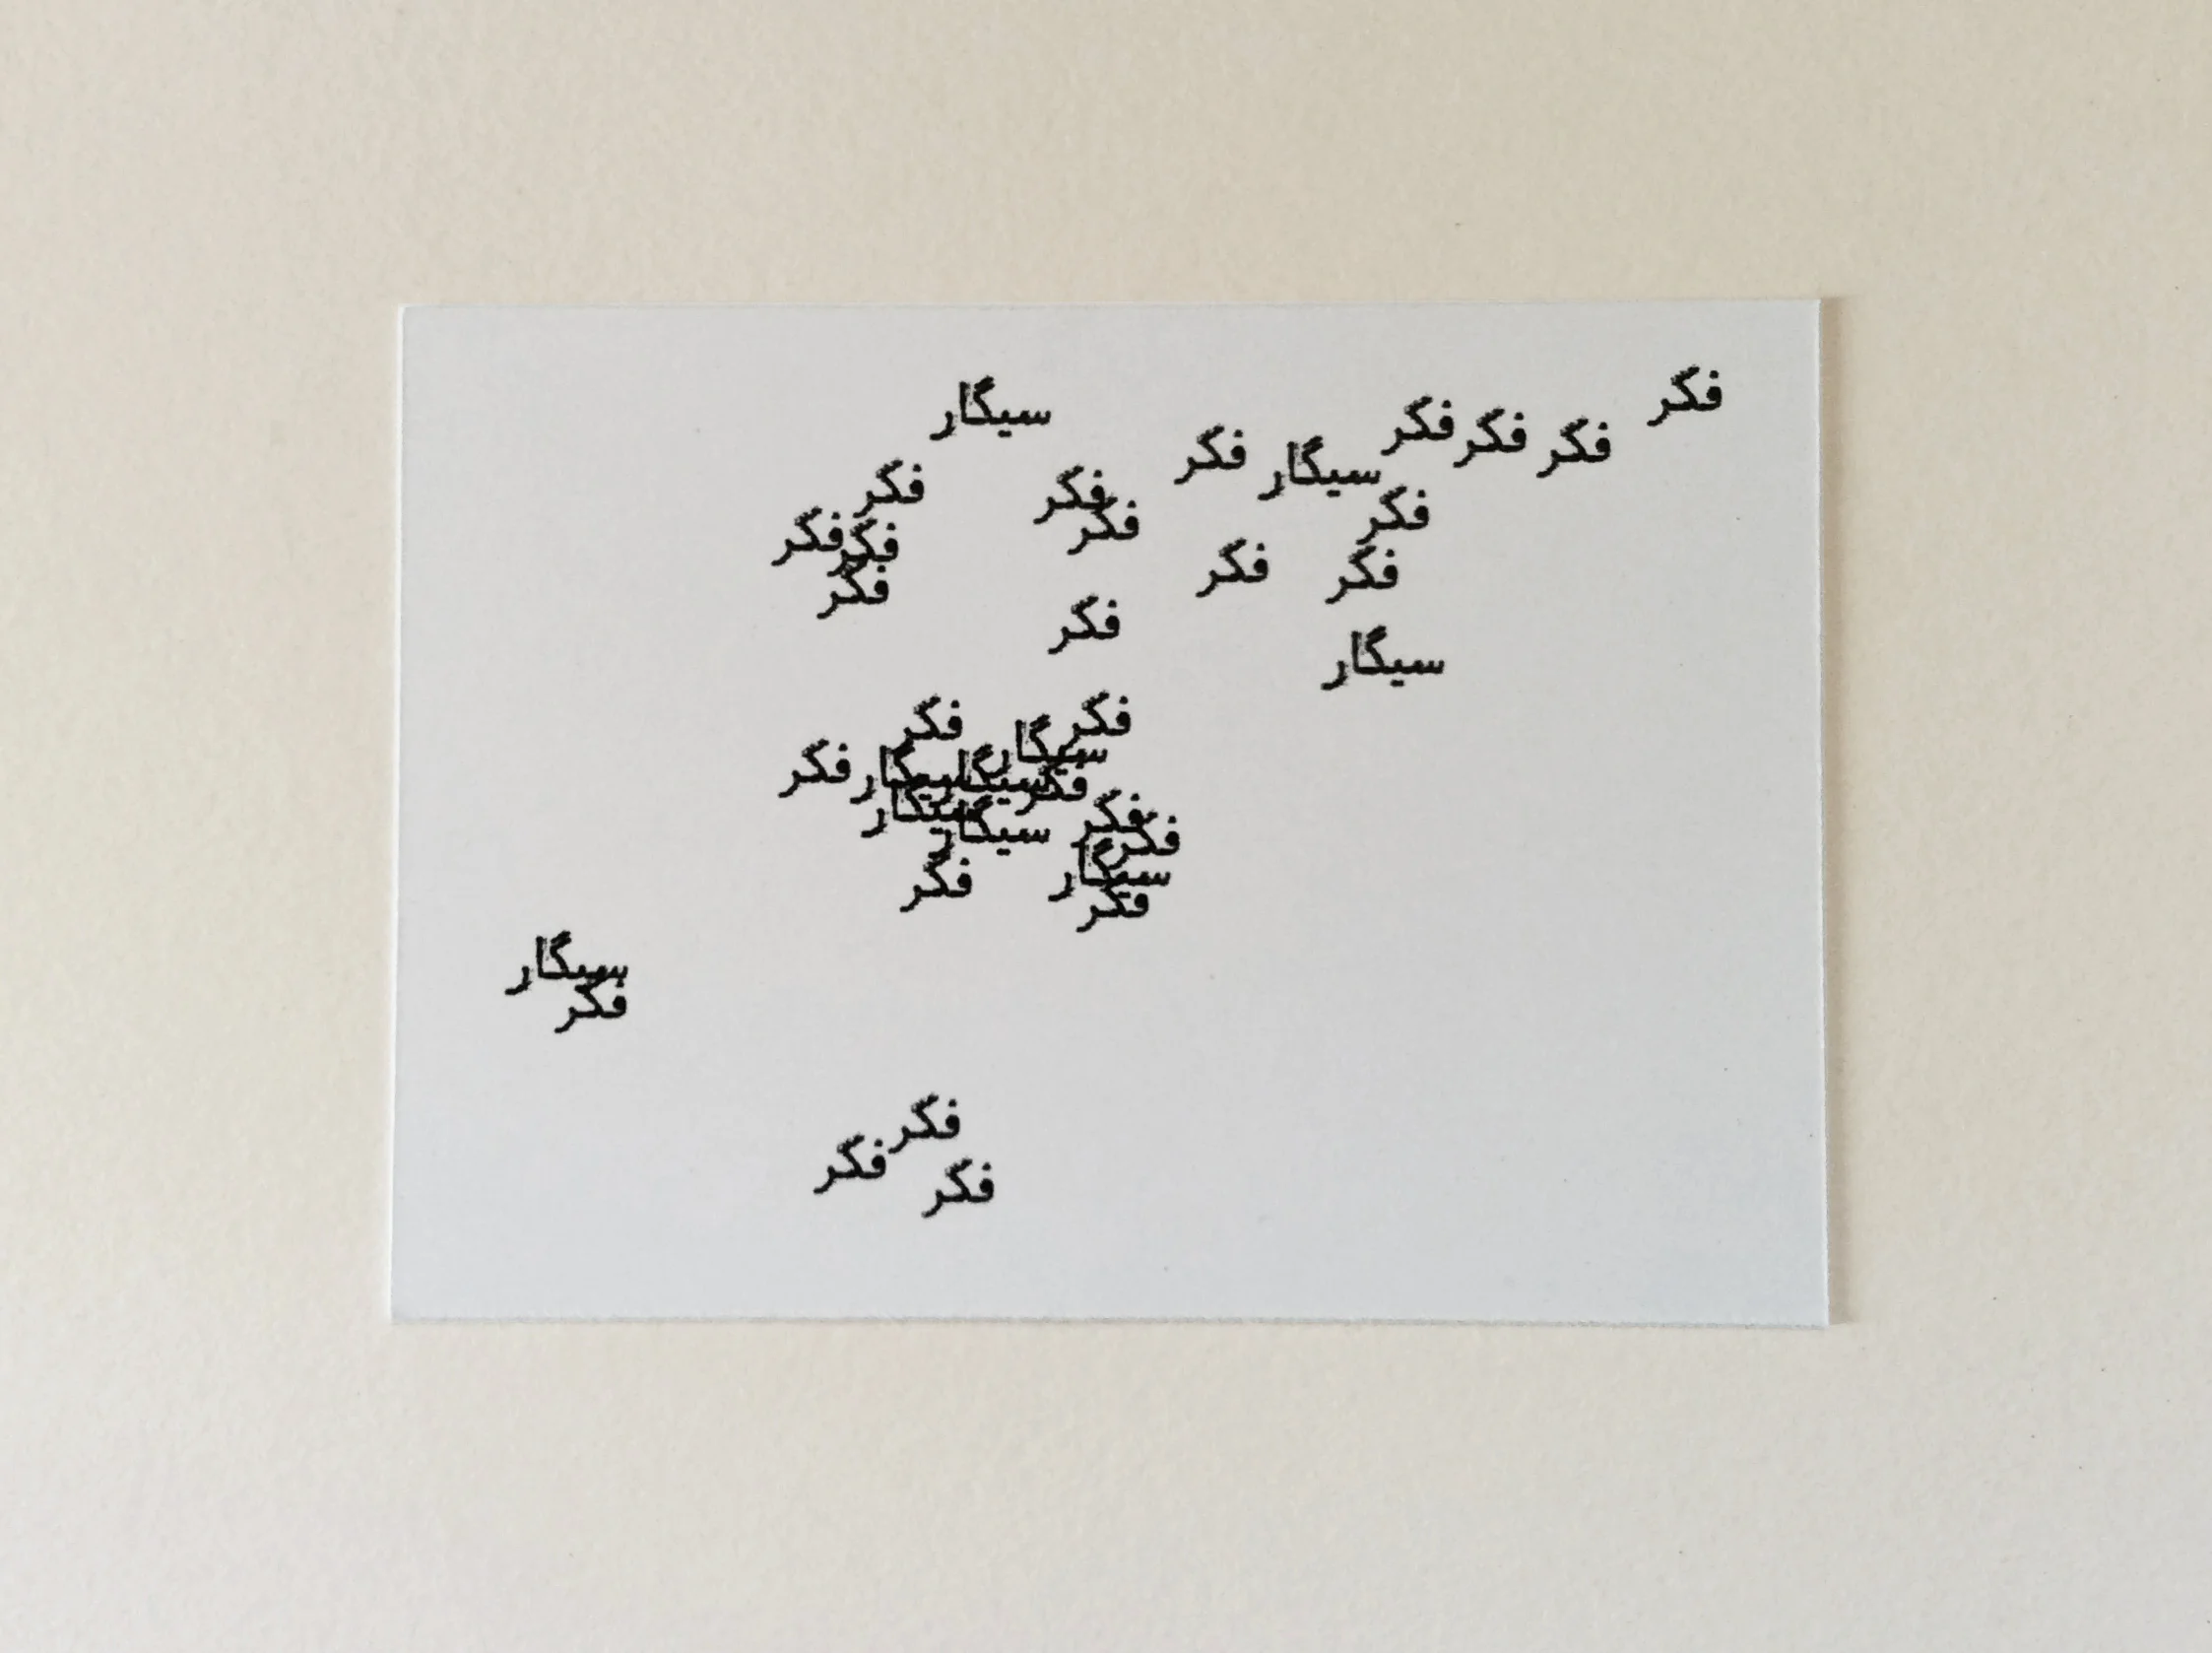 فکر
فکر فکر فکر
سیگار
فکر سیگار
فکر
فکر
فکر
فکر
فکر فکر
فکر
فکر
فکر
فکر
سیگار
فکر
فکر
سیگار
فکر سیگار سیگار فکر
سیگار
سیگار
فکر
فکر
سیگار
فکر
فکر
سیگار
فکر
فکر
فکر
فکر